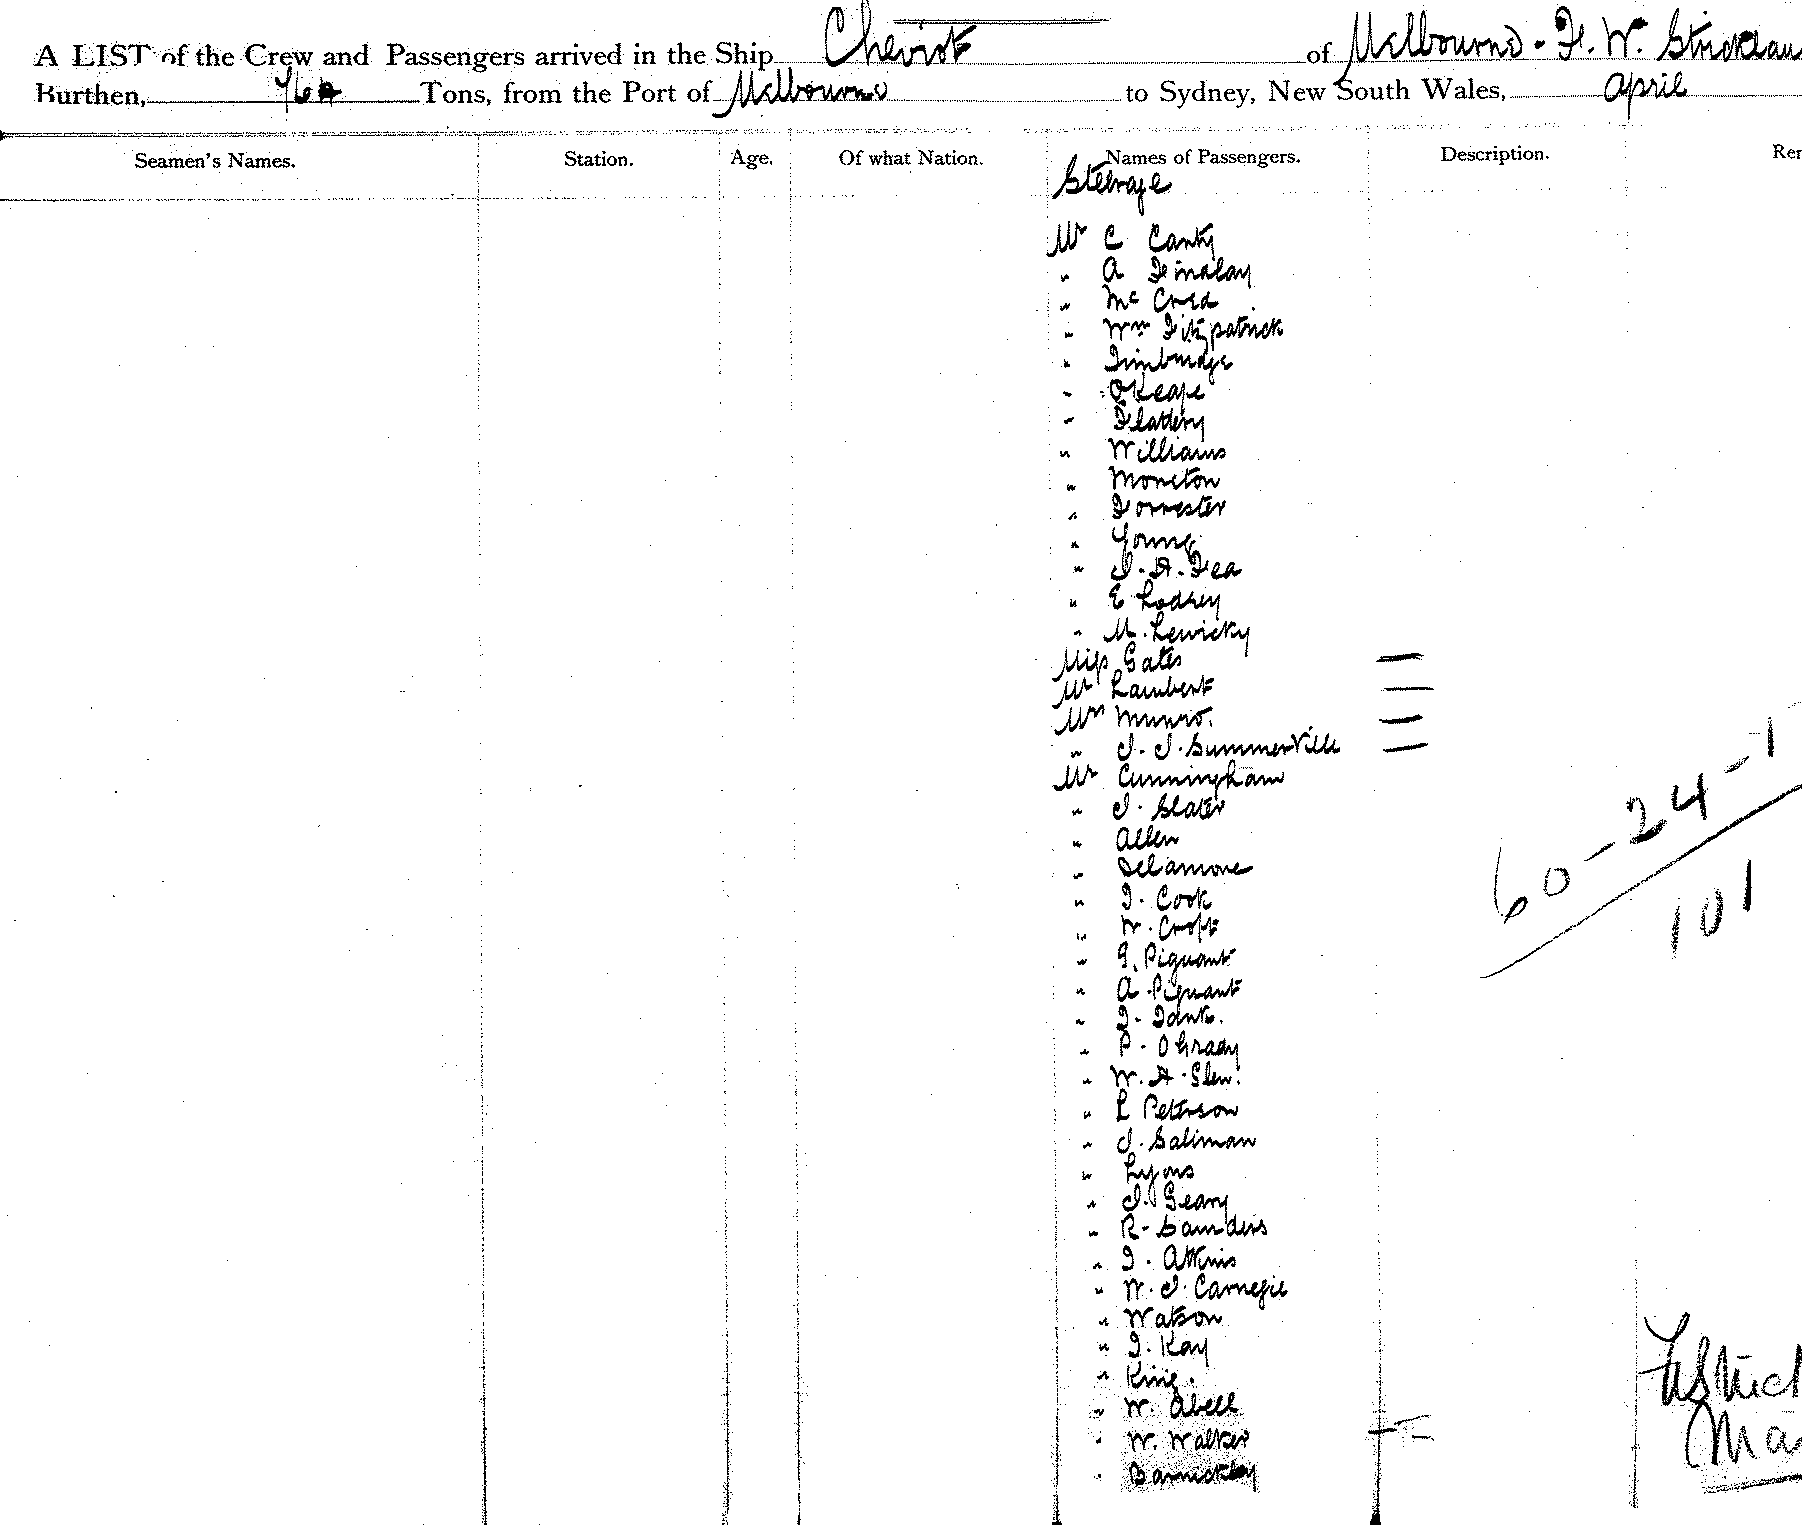 A LIST of the Crew and Passengers arrived in the Ship Cheviot of Melbourne - F. W.
Burthen, 764 Tons, from the Port of Melbourne to Sydney, New South Wales, April
Seamen's Names. Station. Age. Of what Nation. Names of Passengers. Description.
Steerage
Mr C Canty
" A Finalay
" Mc Crea
" Wm Fitzpatrick
" Timbridge
" OKeafe
" Flattery
" Williams
" Moncton
" Forrester
" Young
" J. A. Fea
" E Lodrey
" M. Lewicky
Miss Gates
Mr Lambert
Mrs Munro.
" J. J. SummerVille
Mr Cunningham
" J. Slater
" Allen
" Delamore
" I. Cook
" W. Croft
" G. Piguant
" A Piguant
" P. OGrady
" W. A. Glen.
" L Peterson
" J. Saliman
" Lyons
" J. Geary
" R. Saunders
" I. Atkins
" W. J. Carnegie
" Watson
" I. Kay
" King.
" W. Abell
" W. Walker
60 - 24 - 1
101